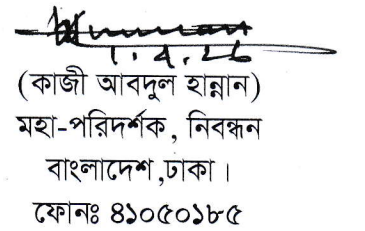 ১.৭.২৬
(কাজী আবদুল হান্নান)
মহা-পরিদর্শক, নিবন্ধন
বাংলাদেশ,ঢাকা।
ফোনঃ ৪১০৫০১৮৫